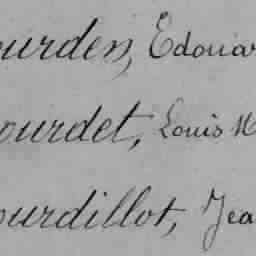 ourden, Edouar
ourdet, Louis M
ourdillot, Jea